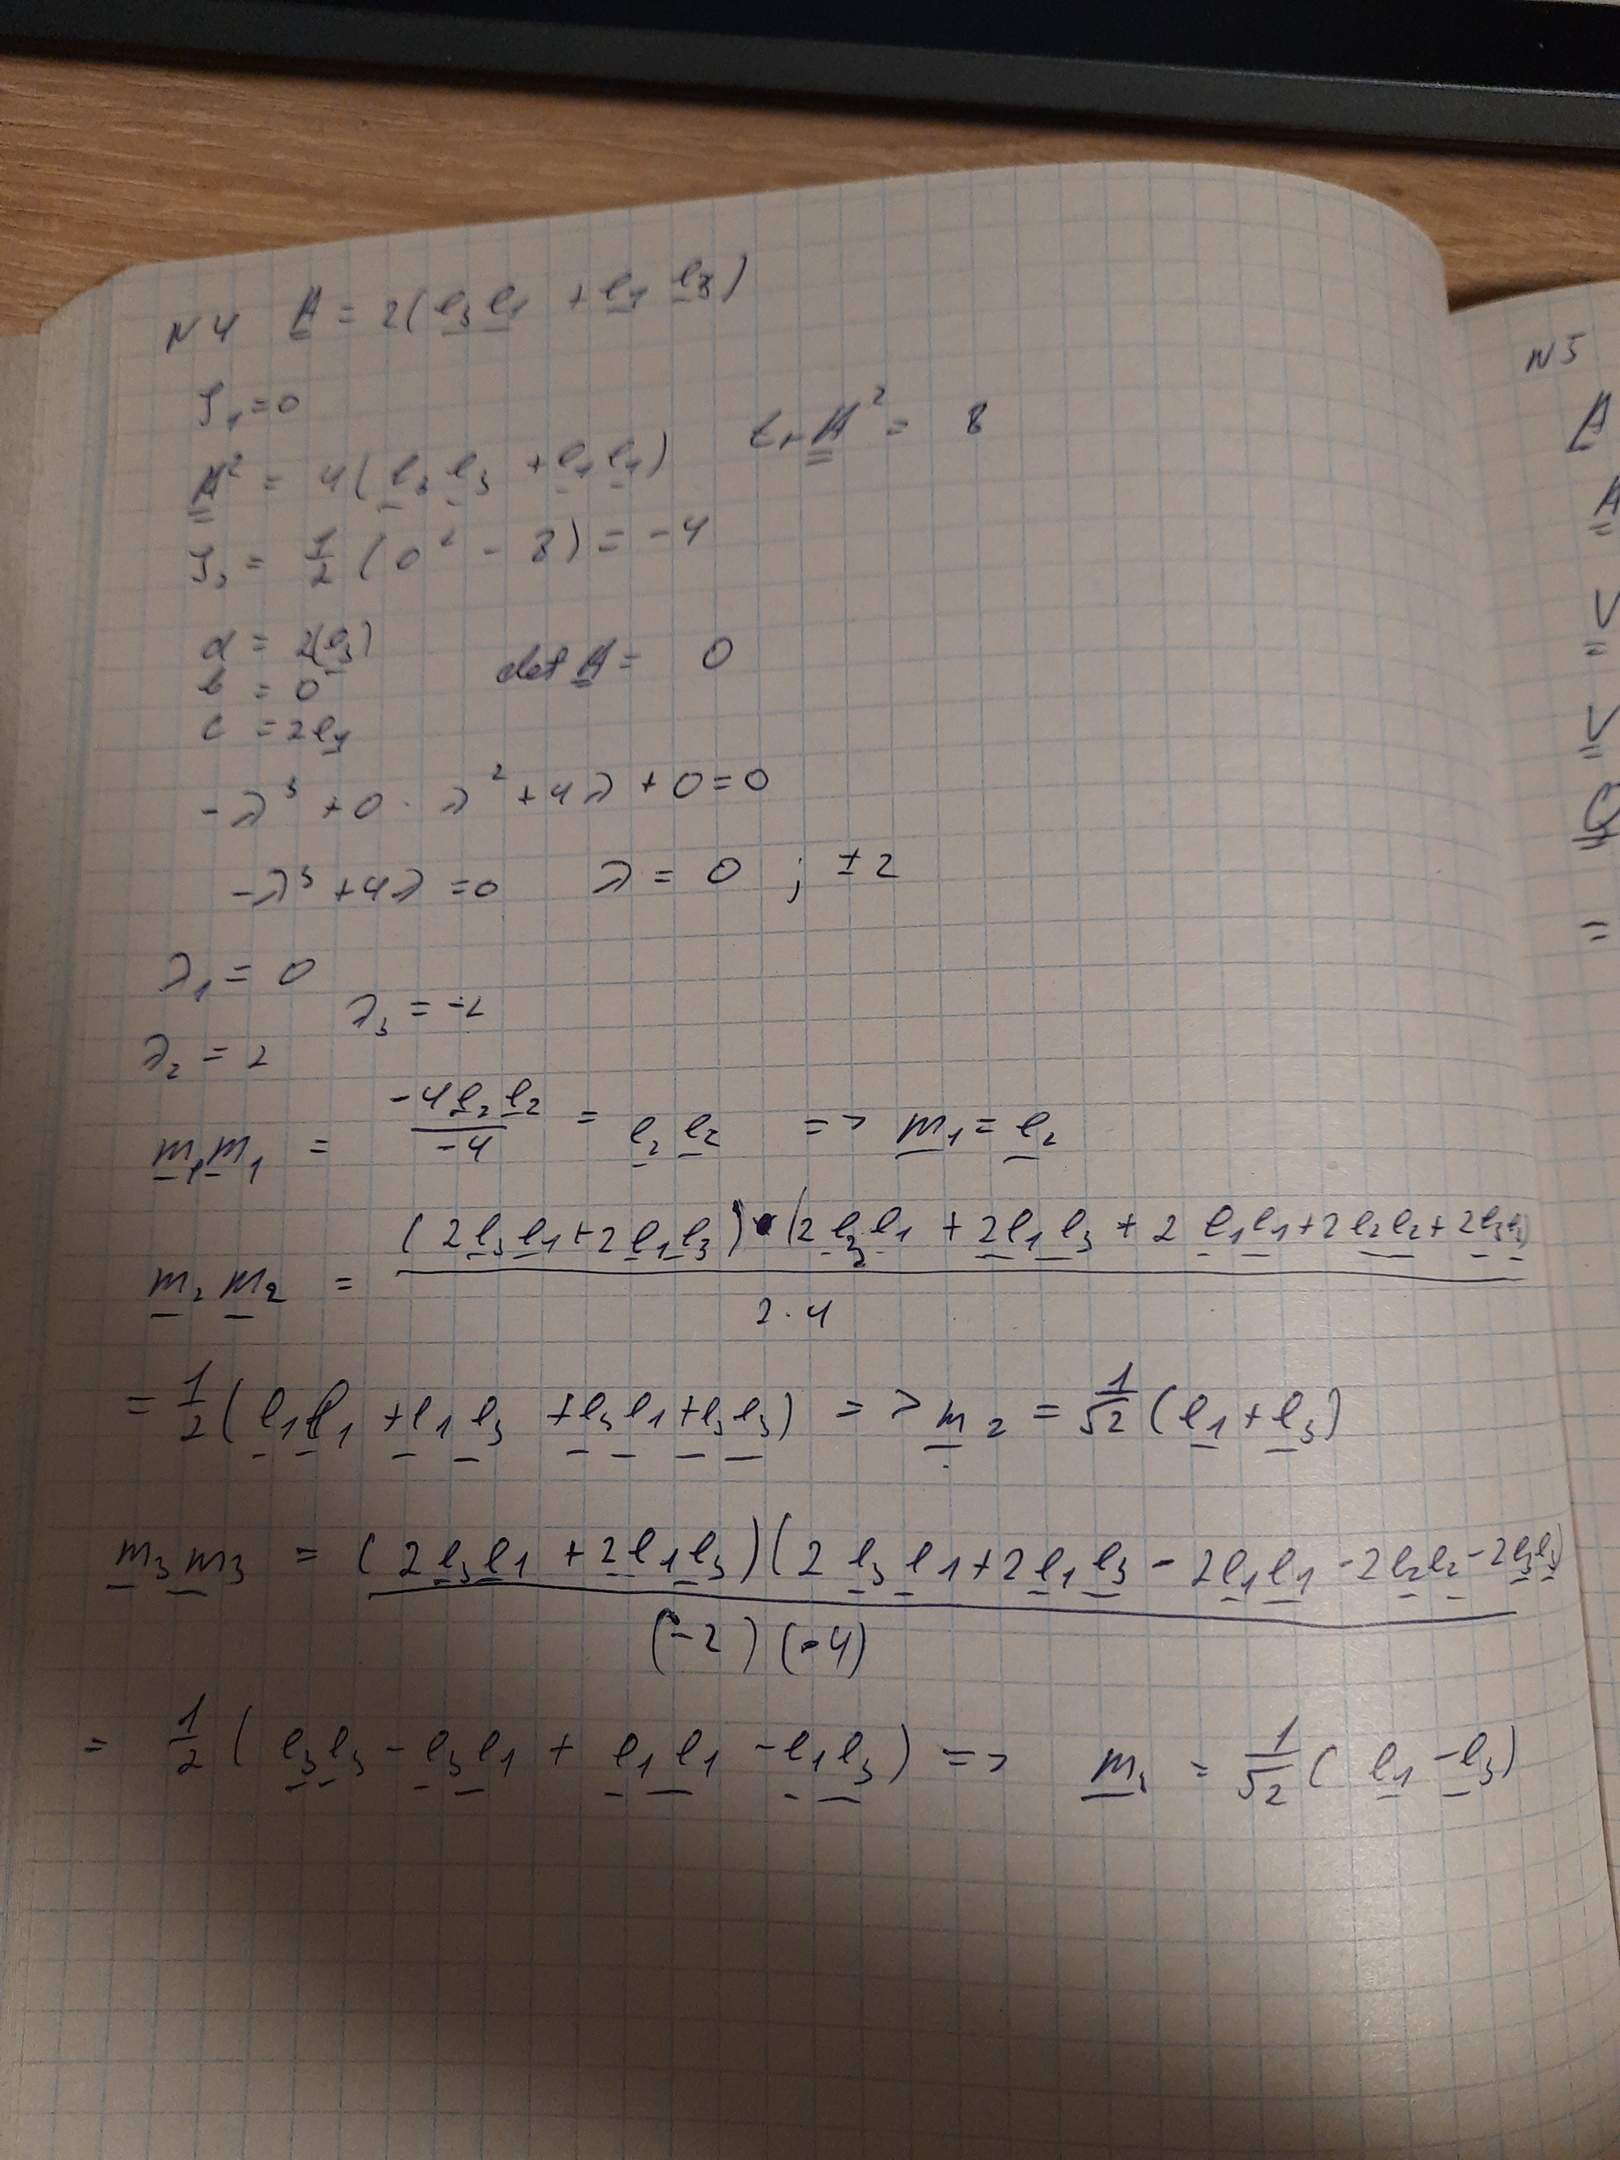 N4 A = 2(e₃e₁ + e₁e₃)
J₁ = 0
A² = 4(e₃e₃ + e₁e₁) tr A² = 8
J₂ = 1/2 (0² - 8) = -4
a = 2(e₃)
b = 0 det A = 0
c = 2e₁
-λ³ + 0 · λ² + 4λ + 0 = 0
-λ³ + 4λ = 0 λ = 0 ; ±2
λ₁ = 0
λ₃ = -2
λ₂ = 2
m₁m₁ = -4e₂e₂ / -4 = e₂e₂ => m₁ = e₂
m₂m₂ = (2e₃e₁ + 2e₁e₃) · (2e₃e₁ + 2e₁e₃ + 2e₁e₁ + 2e₂e₂ + 2e₃e₃) / 2·4
= 1/2 (e₁e₁ + e₁e₃ + e₃e₁ + e₃e₃) => m₂ = 1/√2 (e₁ + e₃)
m₃m₃ = (2e₃e₁ + 2e₁e₃)(2e₃e₁ + 2e₁e₃ - 2e₁e₁ - 2e₂e₂ - 2e₃e₃) / (-2)(-4)
= 1/2 (e₃e₃ - e₃e₁ + e₁e₁ - e₁e₃) => m₃ = 1/√2 (e₁ - e₃)
N5
A
A
V
=
V
Q
=